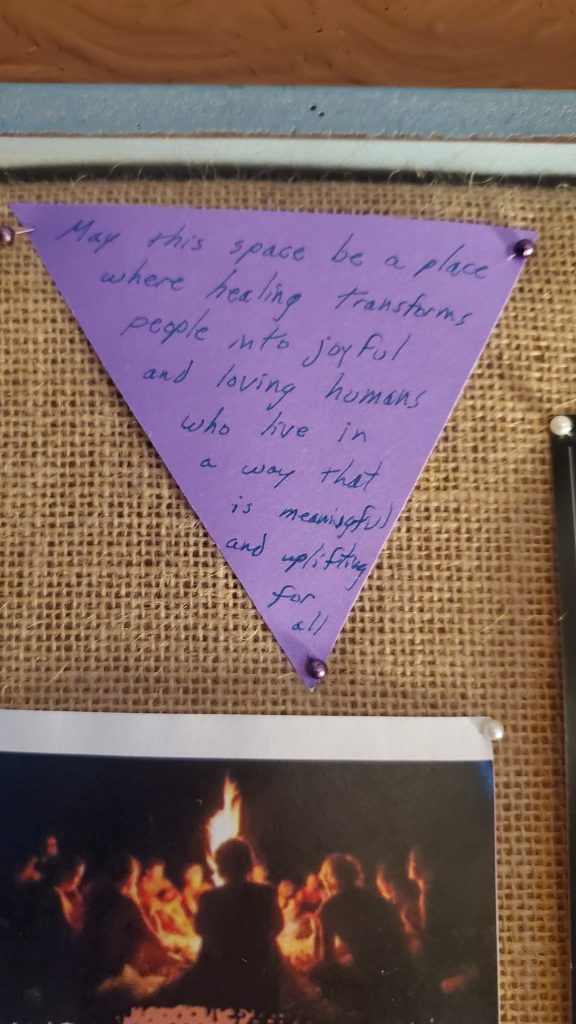 May this space be a place
where healing transforms
people into joyful
and loving humans
who live in
a way that
is meanisgful
and uplifting
for
all